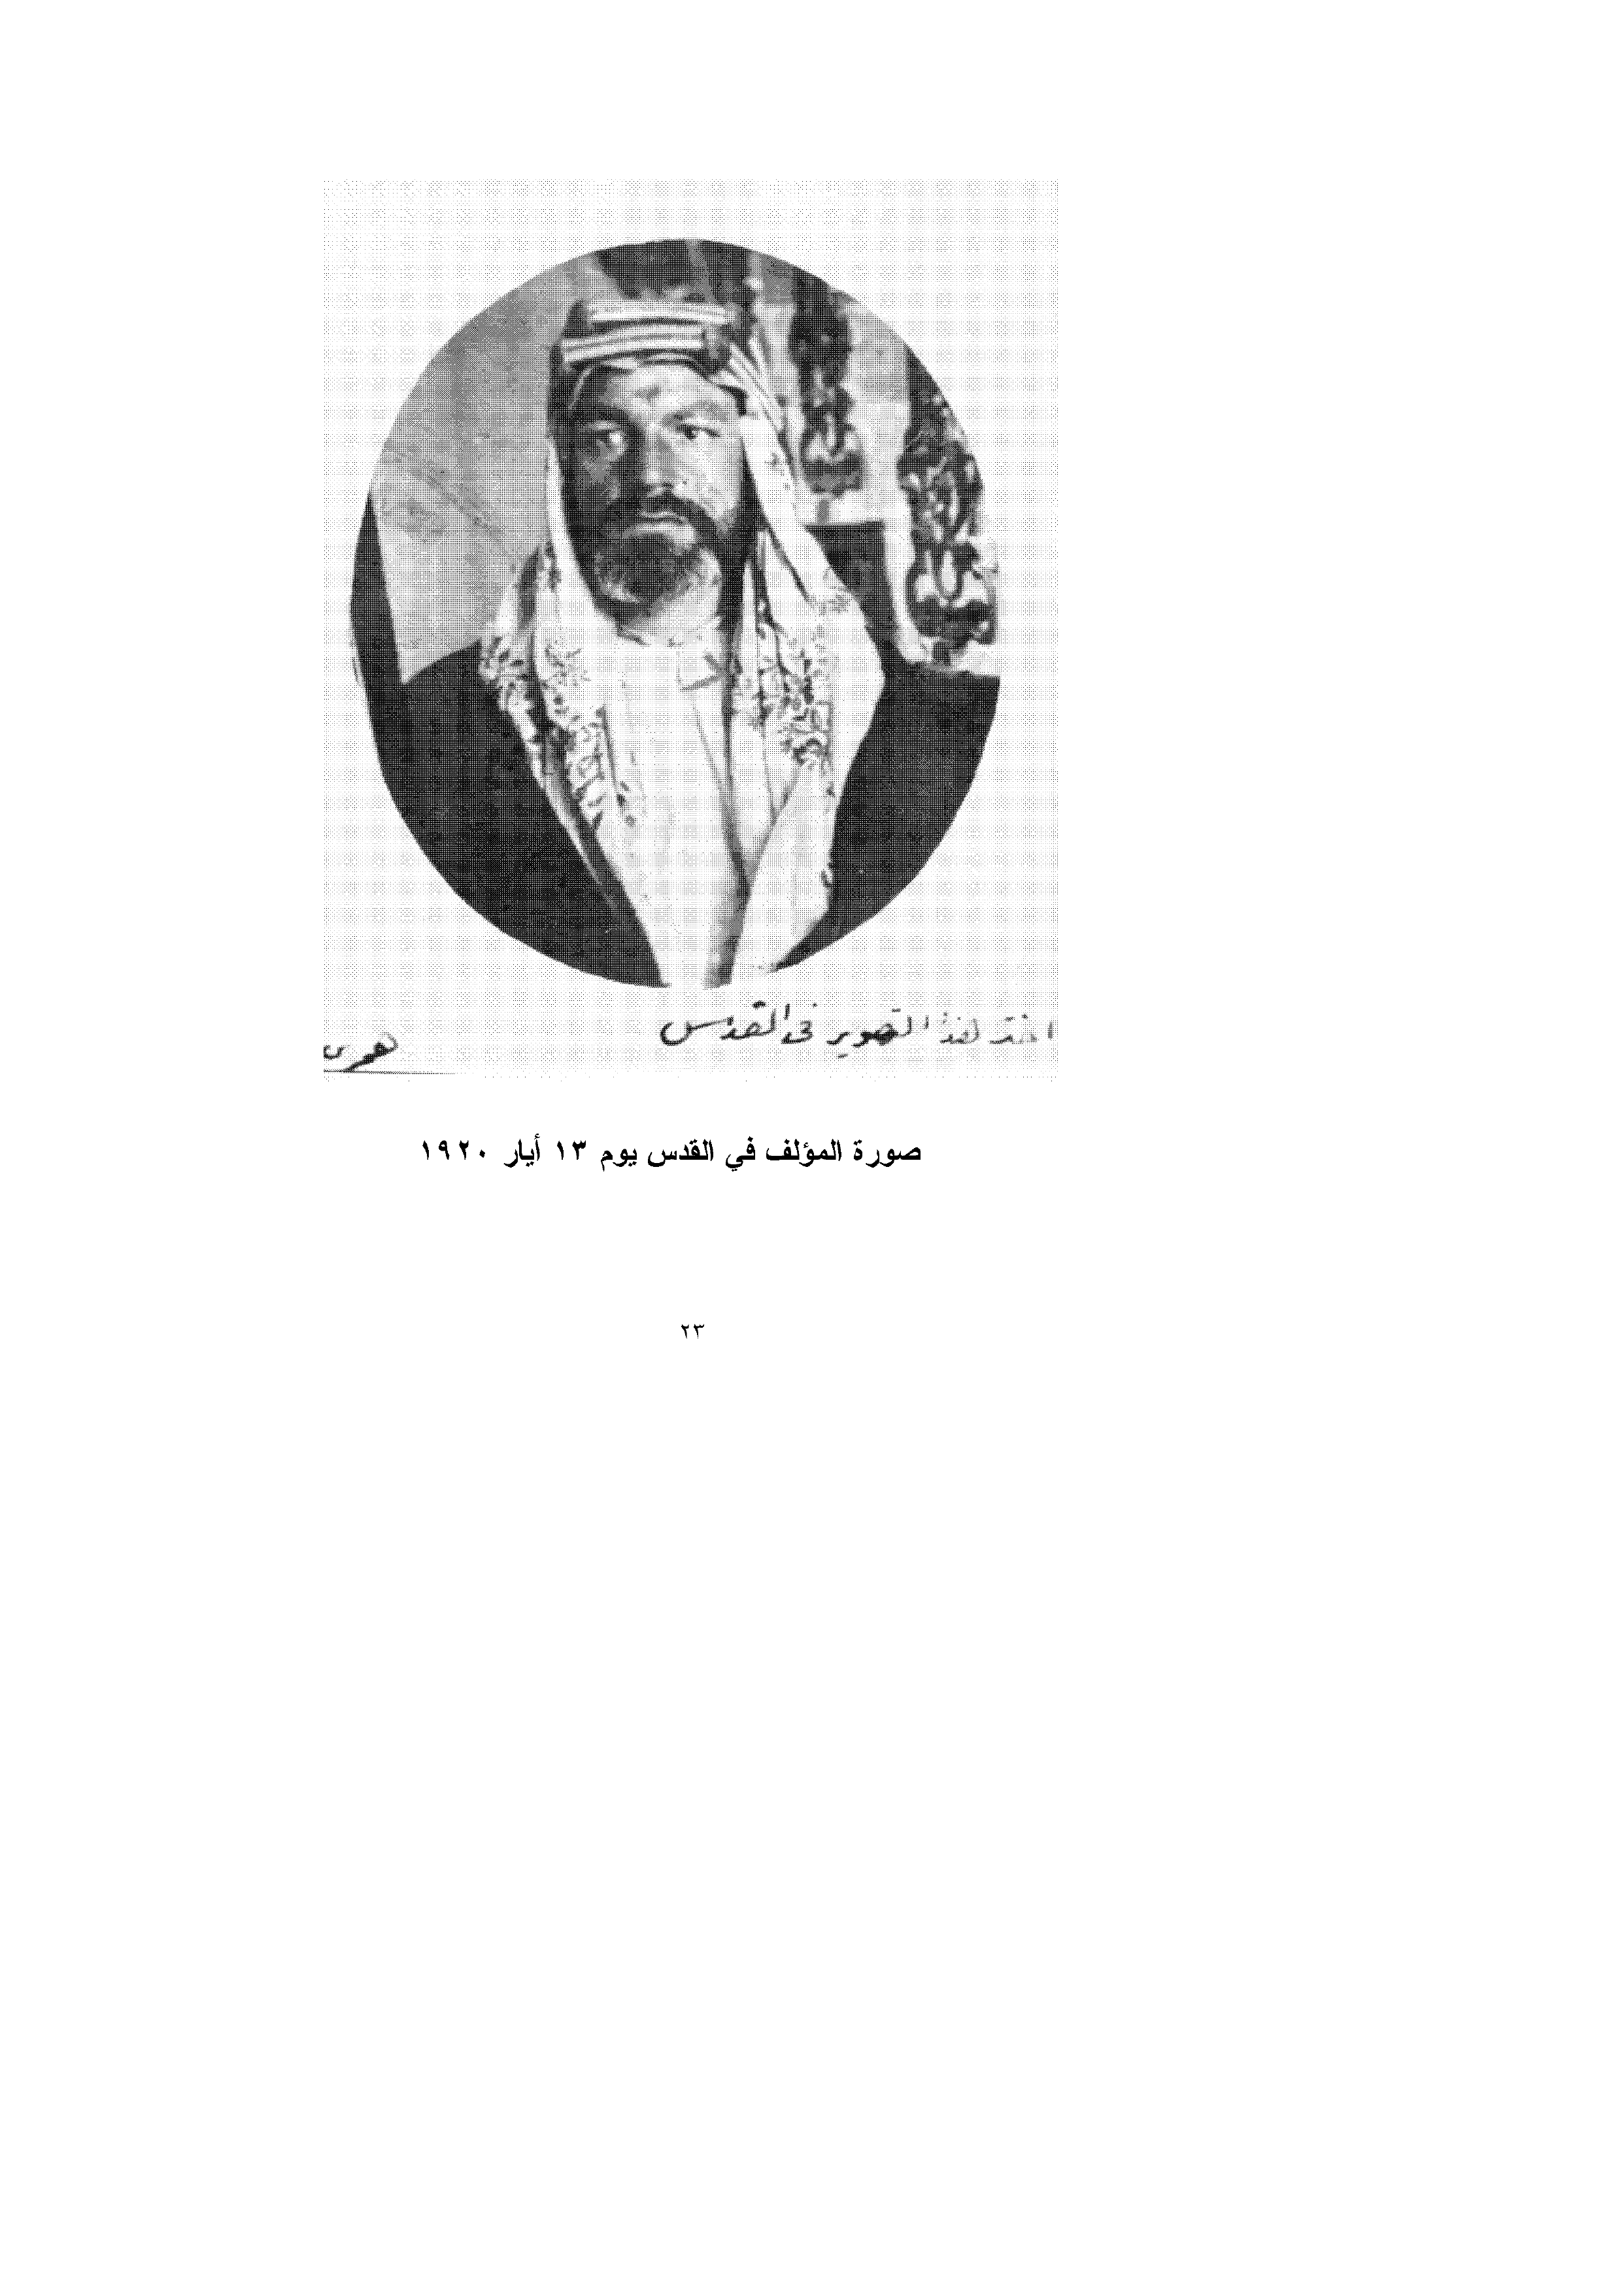 اخذ لهذا التصوير في القدس
صورة المؤلف في القدس يوم ١٣ أيار ١٩٢٠
٢٣